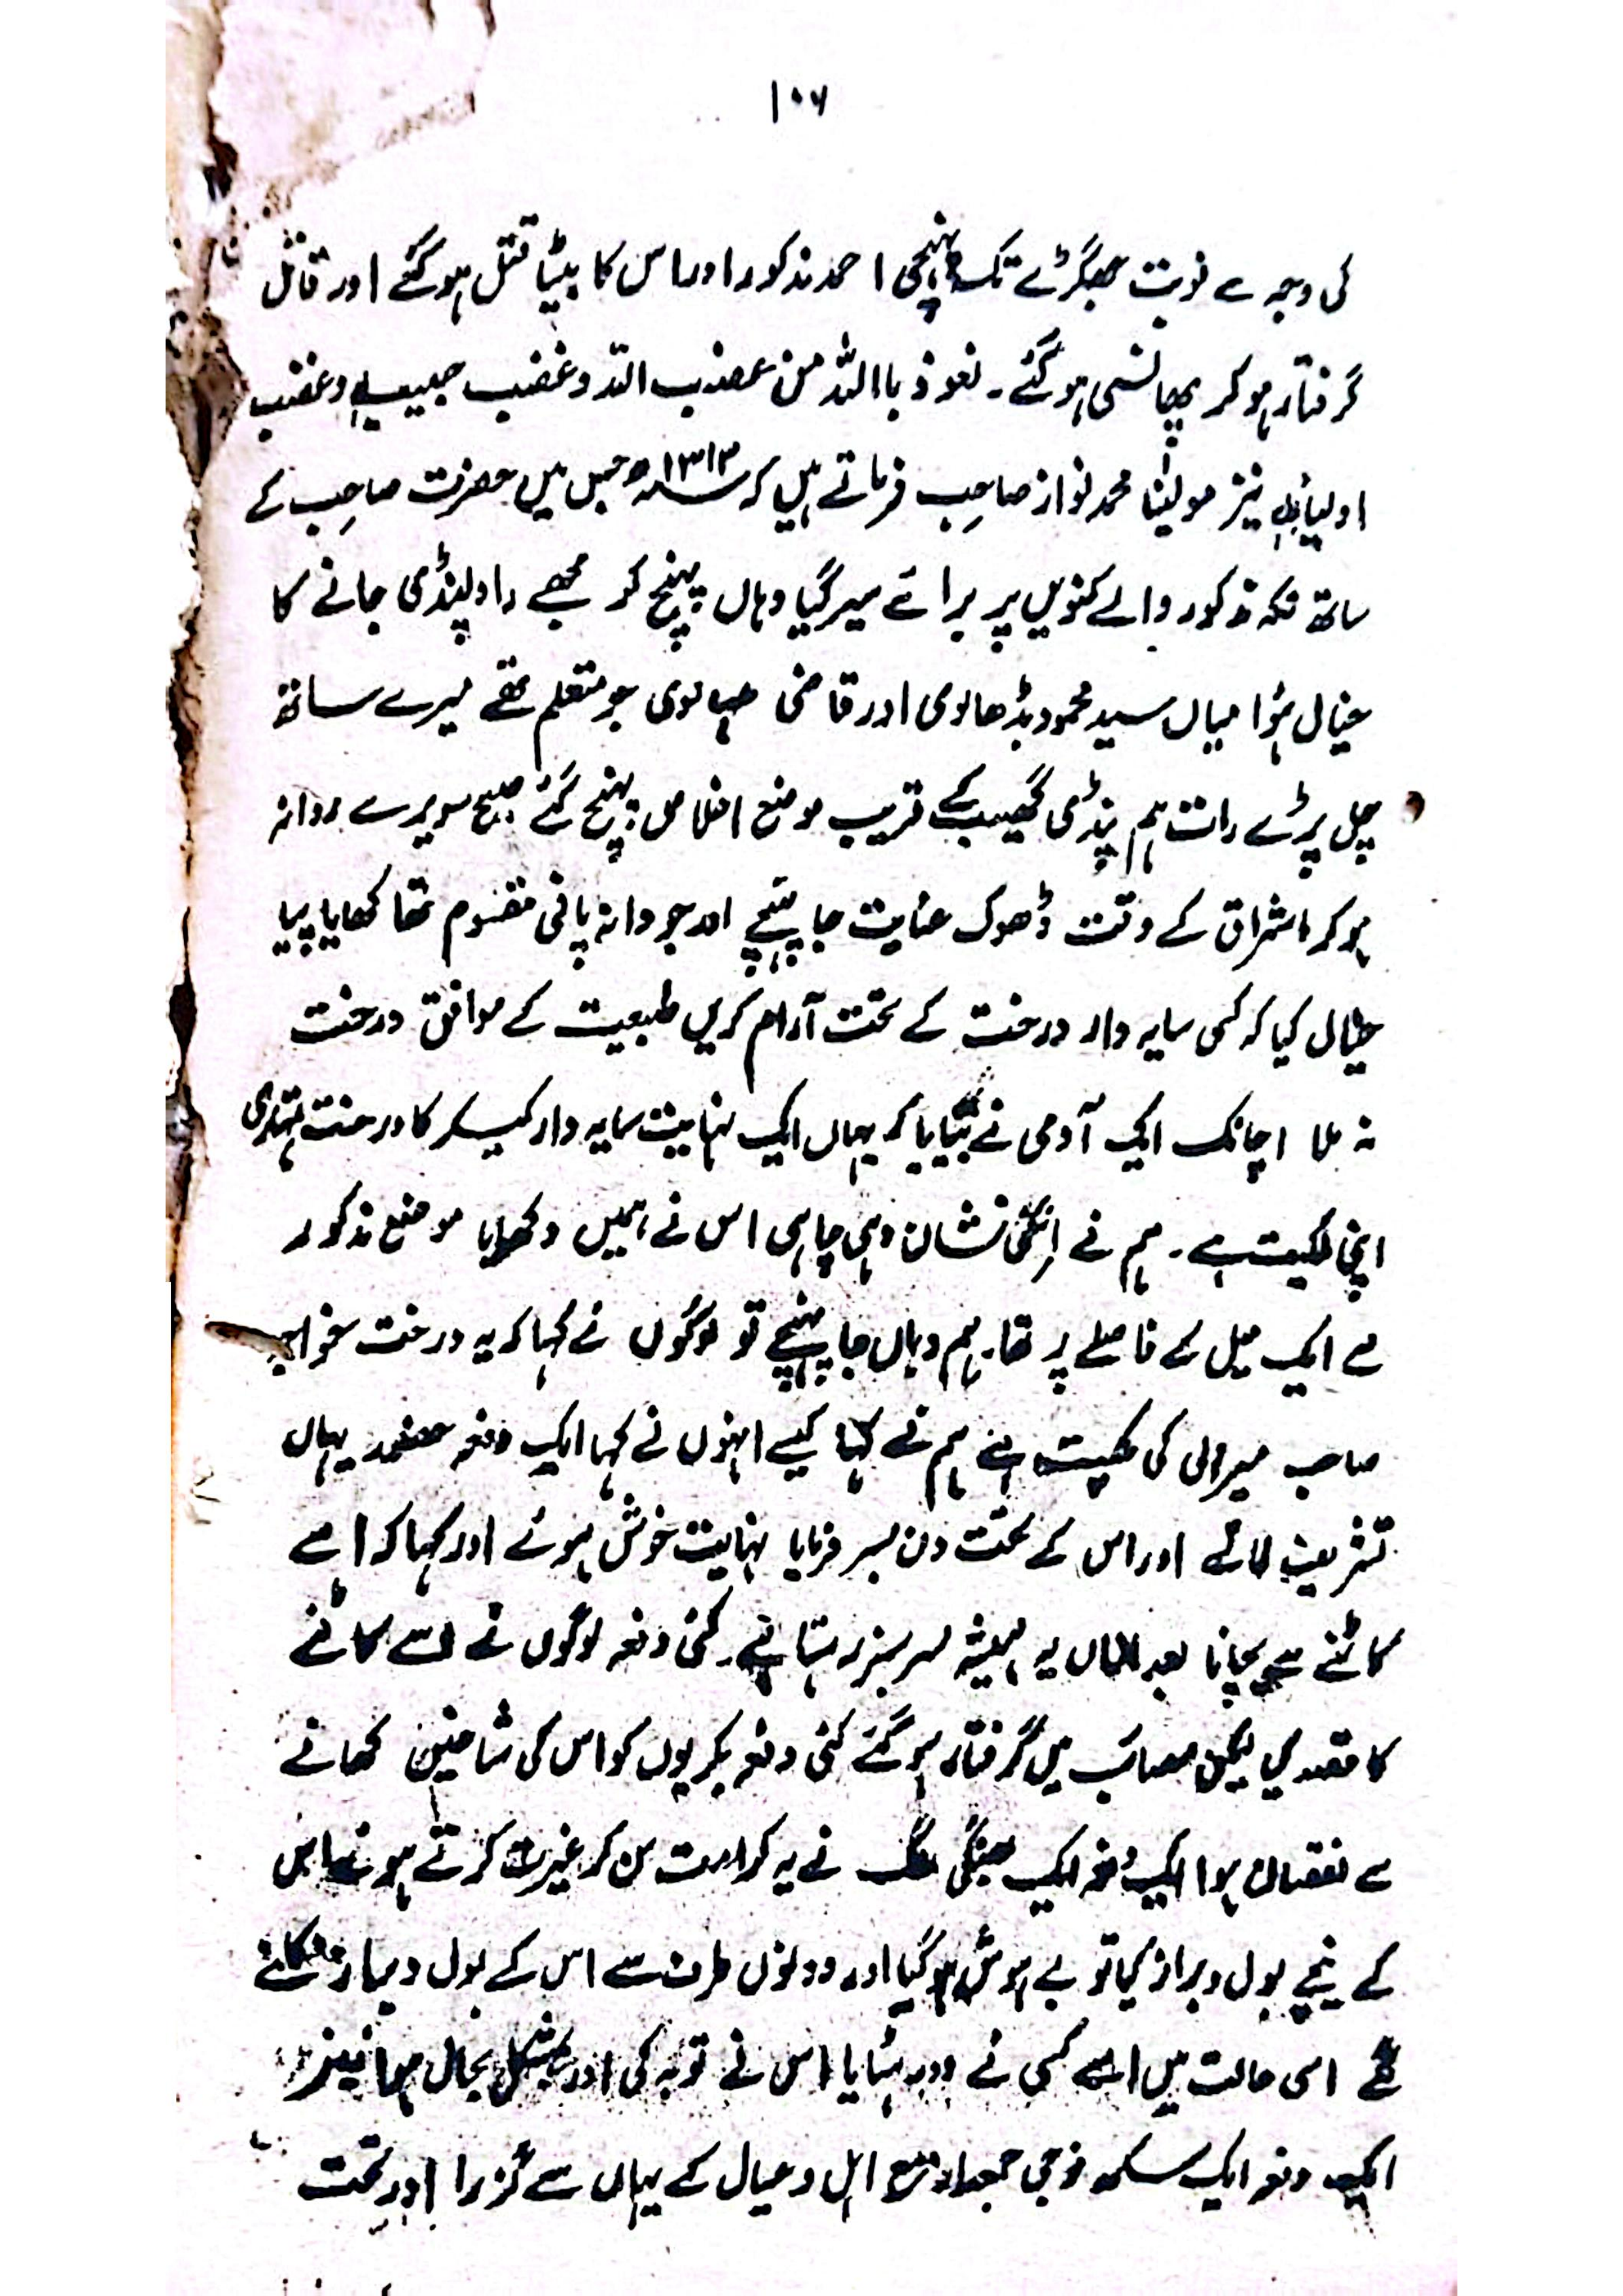 ۱۰۶
کی وجہ سے نوبت جھگڑے تک پہنچی احمد مذکور اور اس کا بیٹا قتل ہو گئے اور قاتل
گرفتار ہو کر پھانسی ہو گئے۔ نعوذ باللہ من غضب اللہ وغضب حبیبہٖ وغضب
اولیائہٖ نیز مولینٰا محمد نواز صاحب فرماتے ہیں کہ ۱۳۱۳ھ جس میں حضرت صاحب کے
ساتھ نکہ مذکور والے کنویں پر برائے سیر گیا وہاں پہنچ کر مجھے راولپنڈی جانے کا
خیال ہؤا میاں سید محمود بڈھالوی اور قاضی جو متعلم تھے میرے ساتھ
چل پڑے رات ہم پنڈی گھیب کے قریب موضع اخلاص پہنچ گئے صبح سویرے روانہ
ہو کر اشراق کے وقت ڈھوک عنایت جا پہنچے اور جو دانہ پانی مقسوم تھا کھایا پیا
خیال کیا کہ کسی سایہ دار درخت کے تحت آرام کریں طبعیت کے موافق درخت
نہ ملا اچانک ایک آدمی نے بتایا کہ یہاں ایک نہایت سایہ دار کیکر کا درخت تمہاری
اپنی ملکیت ہے۔ ہم نے اسکی نشان دہی چاہی اس نے ہمیں دکھلایا موضع مذکور
سے ایک میل کے فاصلے پر تھا۔ ہم وہاں جا پہنچے تو لوگوں نے کہا کہ یہ درخت خواجہ
صاحب میروی کی ملکیت ہے ہم نے کہا کیسے انہوں نے کہا ایک دفعہ حضور یہاں
تشریف لائے اور اس کے تحت دن بسر فرمایا نہایت خوش ہوئے اور کہا کہ اسے
کاٹنے سے بچانا بعد ازاں یہ ہمیشہ سرسبز رہتا ہے۔ کئی دفعہ لوگوں نے اسے کاٹنے
کا مقصد کیا لیکن مصائب میں گرفتار ہو گئے کئی دفعہ بکریوں کو اس کی شاخیں کھانے
سے نقصان ہوا ایک دفعہ ایک بھنگی ملنگ نے یہ کرامت سن کر غیرت کرتے ہوئے اس
کے نیچے بول و براز کیا تو بے ہوش ہو گیا اور دونوں طرف سے اس کے بول و براز نکلنے
لگے اسی حالت میں اسے کسی نے دور ہٹایا اس نے توبہ کی اور بمشکل بحال ہوا نیز
ایک دفعہ ایک سکھ فوجی جمعدار مع اہل و عیال کے یہاں سے گزرا اور تحت